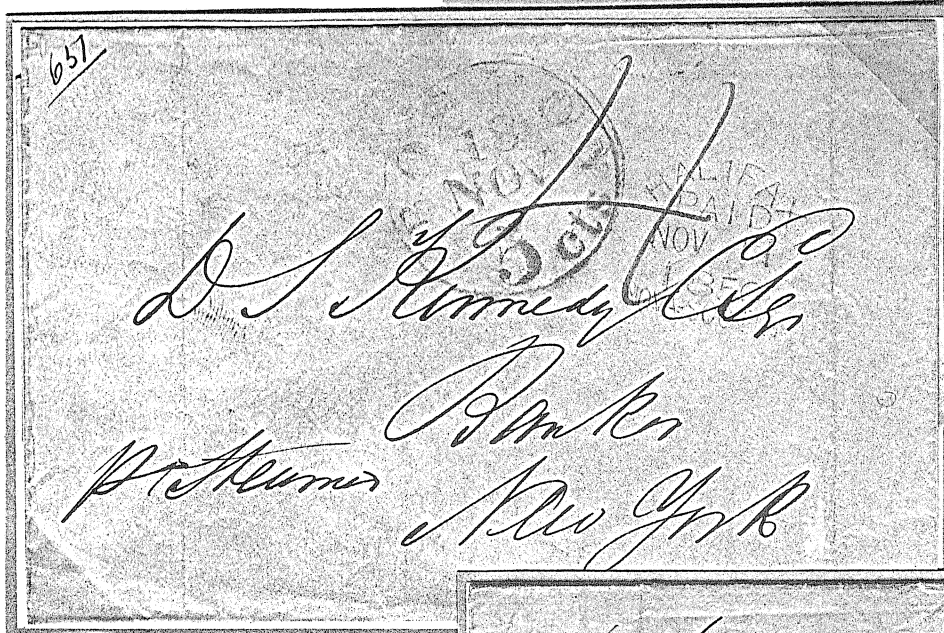 657
NOV
5 cts
HALIFAX
PAID
NOV
D S Kennedy Esqr
Banker
pr Steamer
New York